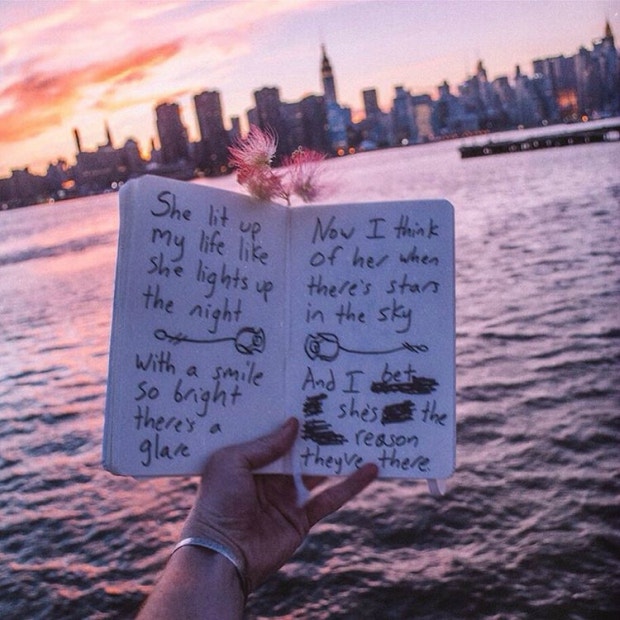 She lit up
my life like
she lights up
the night
with a smile
so bright
there's a
glare
Now I think
of her when
there's stars
in the sky
And I bet
she's the
reason
they've there.